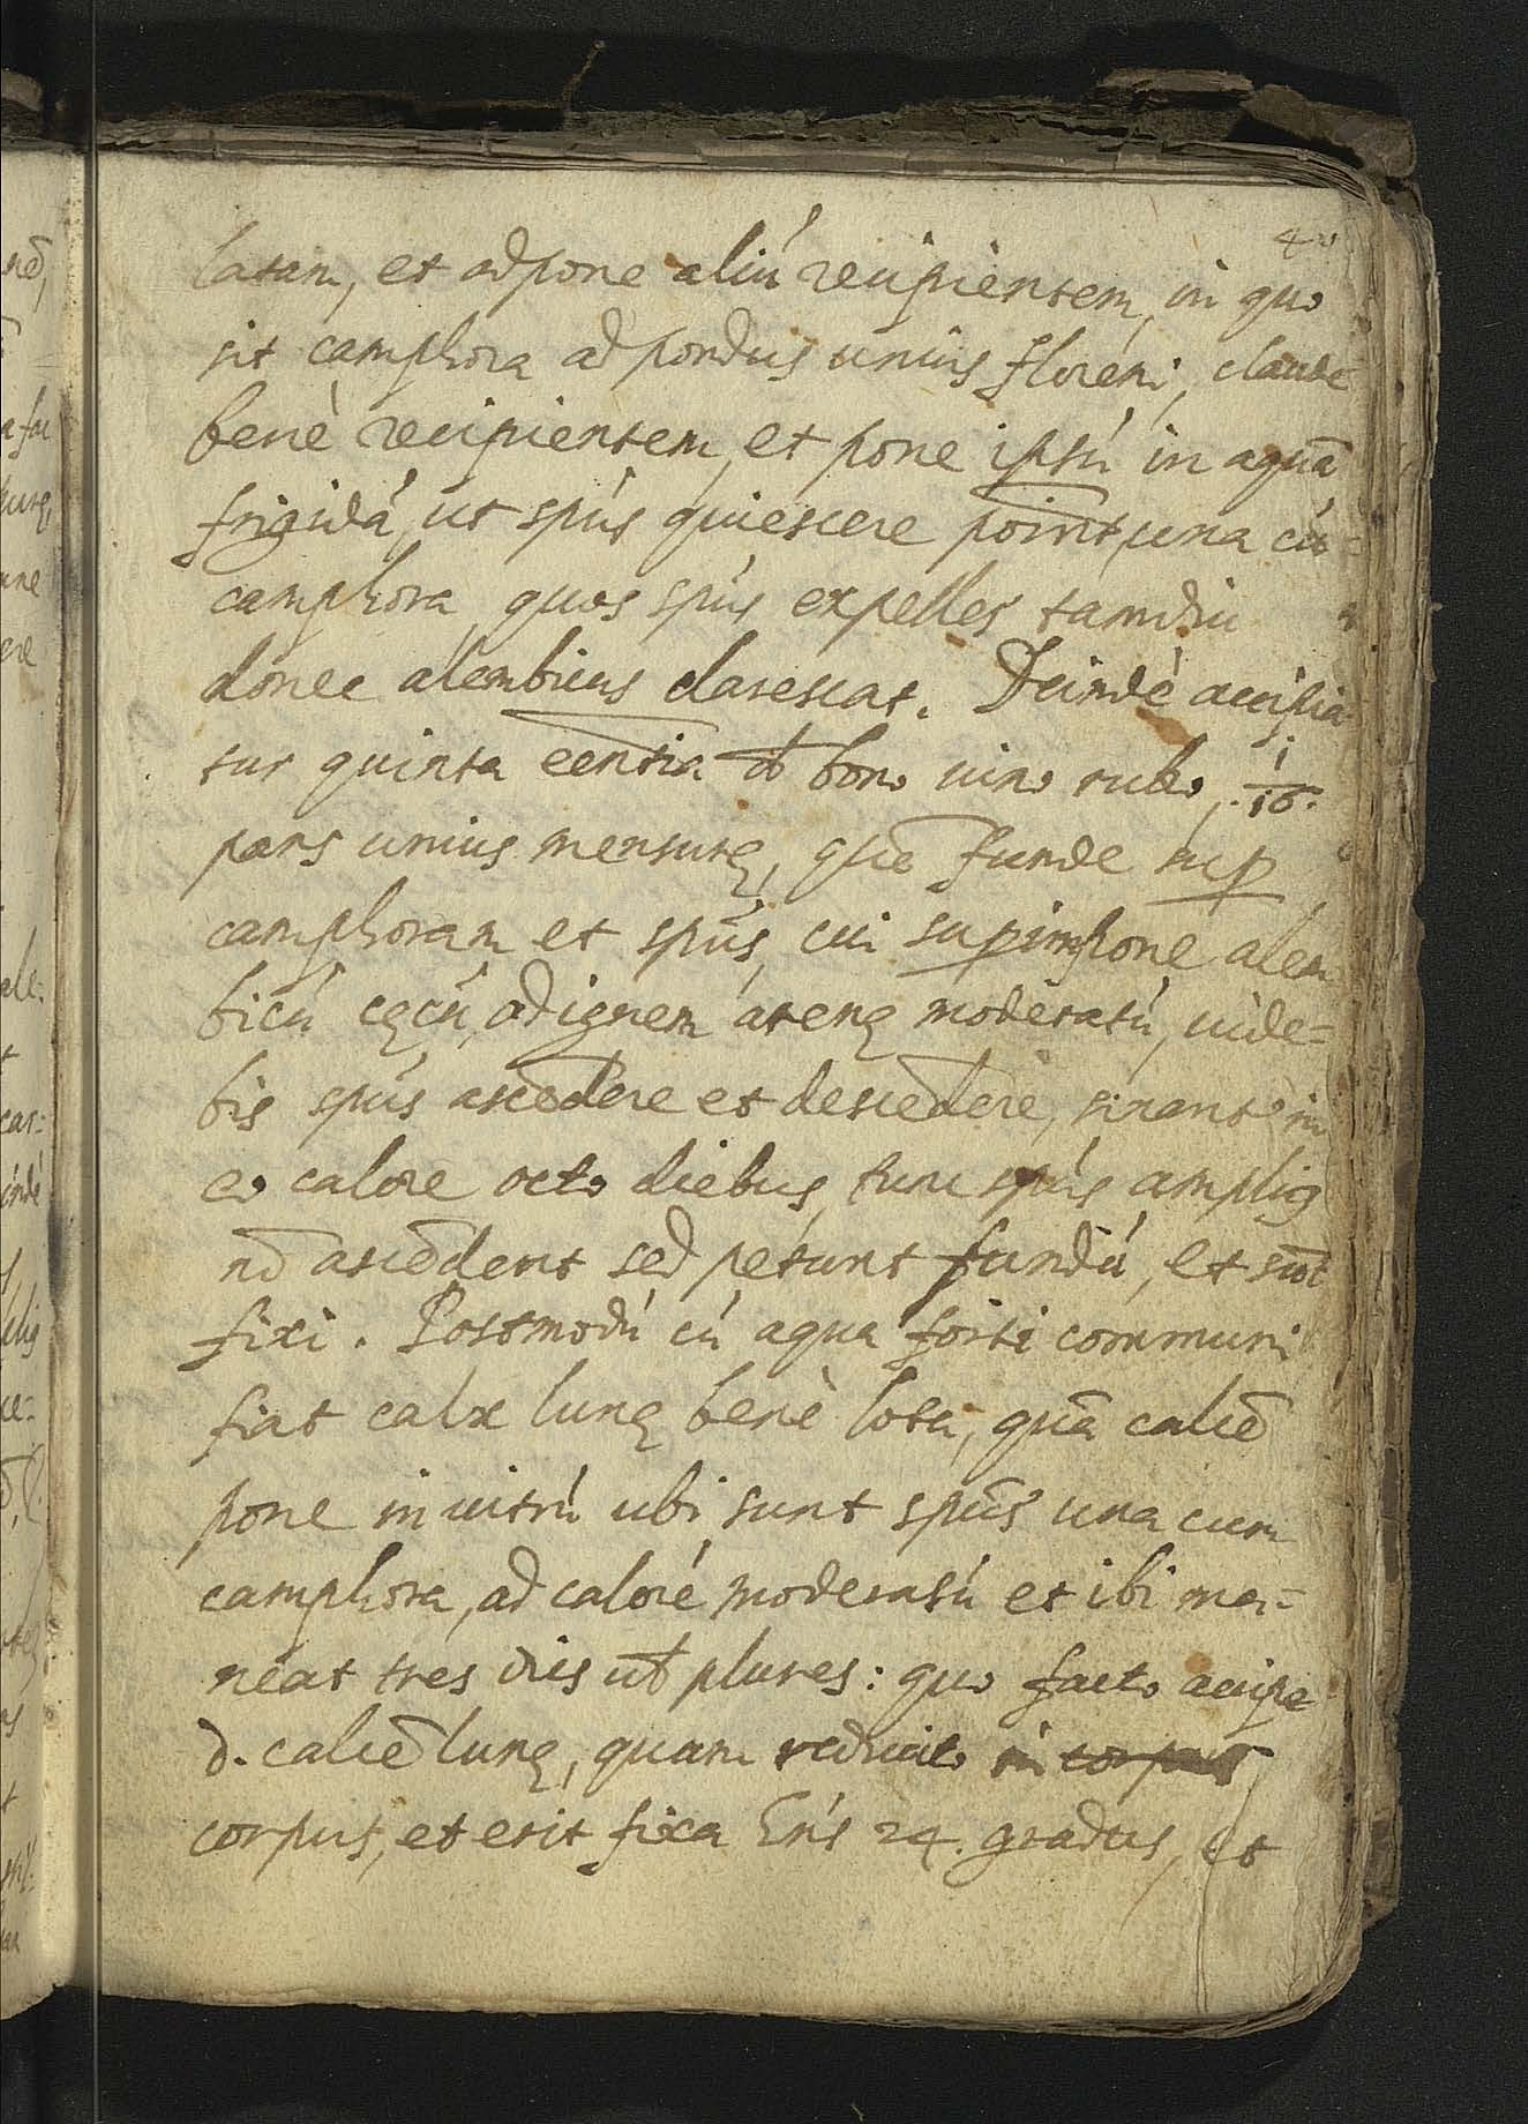 latam, et adpone aliú recipientem, in quo
sit camphora ad pondus unius floreni, claude
benè recipientem, et pone ipsú in aquā
frigidá, ut spūs quiescere possint, una cú
camphora, quos spūs expelles tamdiu
donec alembicus clarescat. Deindè accipia
tur quinta eentia d bono uino rubo, 1/16.
pars unius mensurę, quē funde sup
camphoram et spūs, cui supimpone alem
bicú cęcú, ad ignem arenę moderatú, uide=
bis spūs ascēdere et descēdere, sinant in
eo calore octo diebus, tunc spūs amplius
nō ascēdent sed petunt fundú, et sunt
fixi. Postmodú cú aqua forti communi
fiat calx lunę benè lota, quā calcē
pone in uitrú ubi sunt spūs una cum
camphora, ad caloré moderatú et ibi ma=
neat tres dies ut plures: quo facto accipe
d. calcē lunę, quam reducito in corpus
corpus, et erit fixa 24. gradus, et